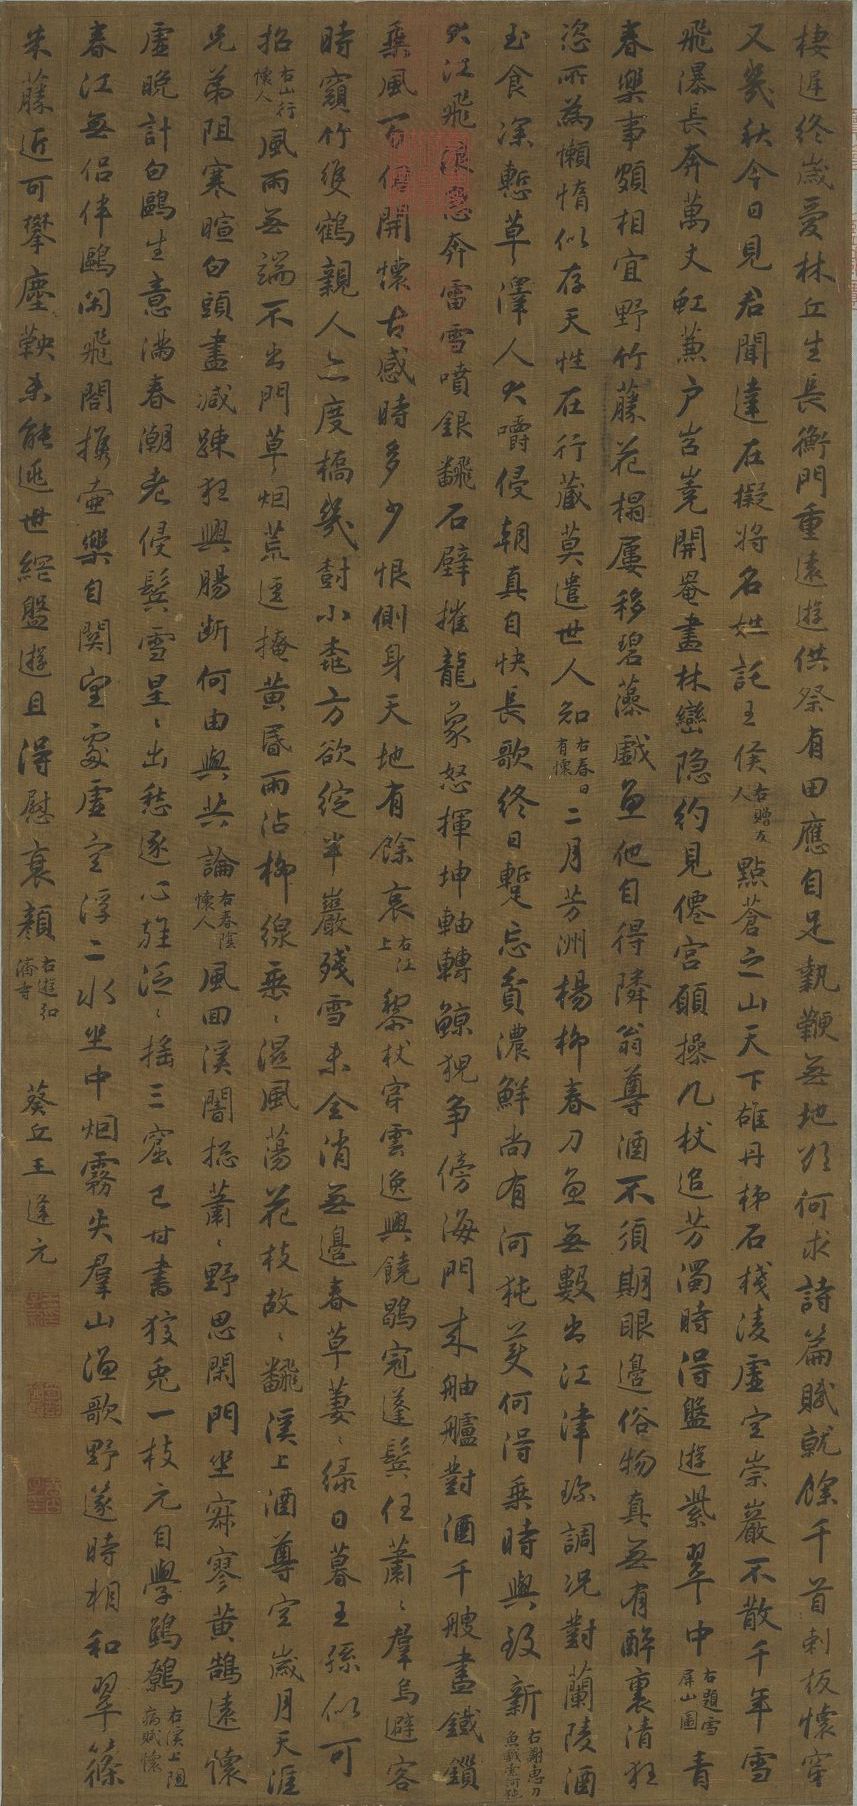 棲遲終歲愛林丘生長衡門重遠遊供祭有田應自足執鞭無地欲何求詩篇賦就餘千首刺板懷穿
又幾秋今日見君聞達在擬將名姓託王侯右贈友人點蒼之山天下雄丹梯石棧淩虛空崇巖不散千年雪
飛瀑長奔萬丈虹薫戶岧嶤開罨畫林巒隱約見僊宮願操几杖追芳濁時得盤遊紫翠中右題雪屏山圖青
春樂事頗相宜野竹藤花榻屢移碧藻戲魚他自得隣翁尊酒不須期眼邊俗物真無有醉裏清狂
恣所為懶惰似存天性在行藏莫遣世人知右春日有懷二月芳洲楊柳春刀魚無數出江津珎調况對蘭陵酒
玉食深慙草澤人大嚼侵朝真自快長歌終日蹔忘貧濃鮮尚有河㹠美何得乗時與致新右謝惠刀魚戲索河㹠
大江飛浪急奔雷雪噴銀飜石壁摧龍象怒揮坤軸轉鯨猊争傍海門来舳艫對酒千艘盡鐵鎖
乗風一百開懷古感時多少恨側身天地有餘哀右江上藜杖穿雲逸興饒鶡冠蓬鬂任蕭〻羣烏避客
時窺竹雙鶴親人亦度橋幾樹小桃方欲綻半巖殘雪未全消無邊春草萋〻緑日暮王孫似可
招右山行懷人風雨無端不出門草〻烟荒逕掩黄昏雨沾栁線垂〻濕風蕩花枝故〻飜溪上酒尊空歲月天涯
兄弟阻寒暄白頭盡减踈狂興腸斷何由與共論右春陰懷人風回溪閣揔蕭〻野思閑門坐寂寥黄鵠遠懷
虛晚計白鷗生意滿春潮老侵鬂雪星〻出愁逐心旌泛〻摇三窟已甘書狡兎一枝元自學鷦鷯右溪上阻病賦懷
春江無侣伴鷗閑飛閣携壷樂自関望處虛空浮二水坐中烟霧失羣山漁歌野遂時相和翠篠
朱藤近可攀塵鞅未能逃世網盤遊且得慰衰顔右遊弘濟寺 葵丘王逢元